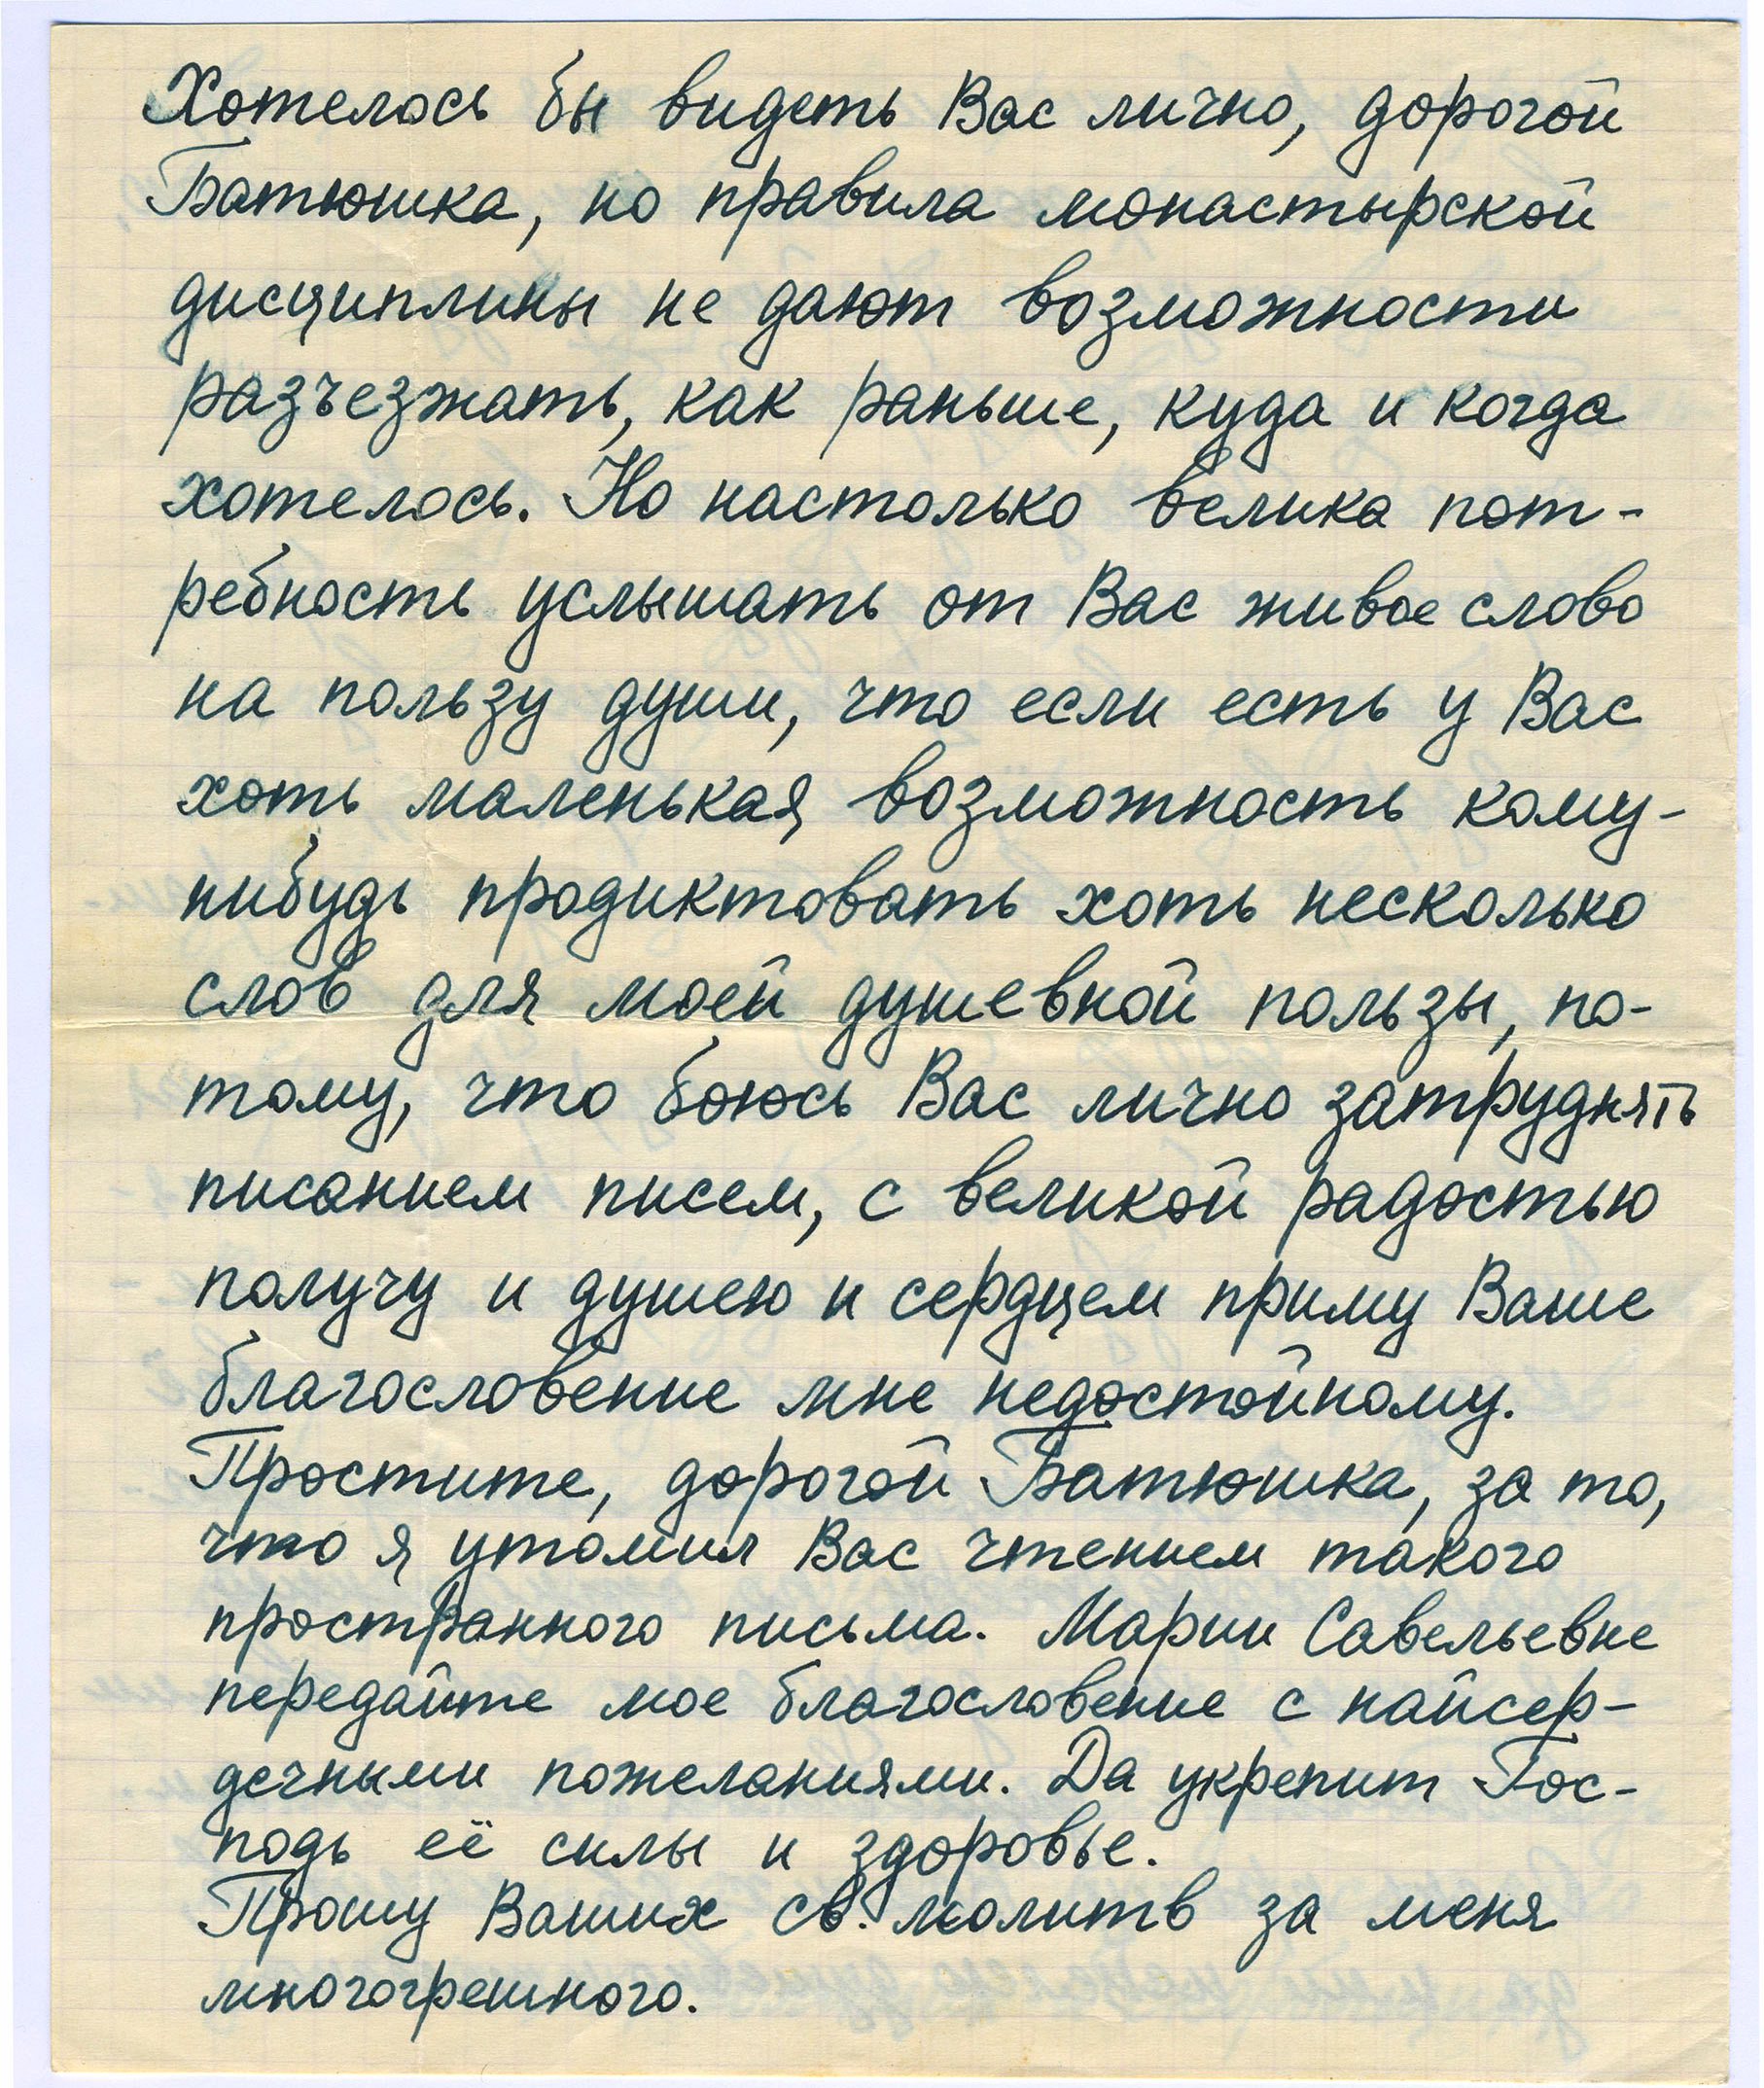 Хотелось бы видеть Вас лично, дорогой
Батюшка, но правила монастырской
дисциплины не дают возможности
разъезжать, как раньше, куда и когда
хотелось. Но настолько велика пот-
ребность услышать от Вас живое слово
на пользу души, что если есть у Вас
хоть маленькая возможность кому-
нибудь продиктовать хоть несколько
слов для моей душевной пользы, по-
тому, что боюсь Вас лично затруднять
писанием писем, с великой радостью
получу и душею и сердцем приму Ваше
благословение мне недостойному.
Простите, дорогой Батюшка, за то,
что я утомил Вас чтением такого
пространного письма. Марии Савельевне
передайте мое благословение с найсер-
дечными пожеланиями. Да укрепит Гос-
подь её силы и здоровье.
Прошу Ваших св. молитв за меня
многогрешного.